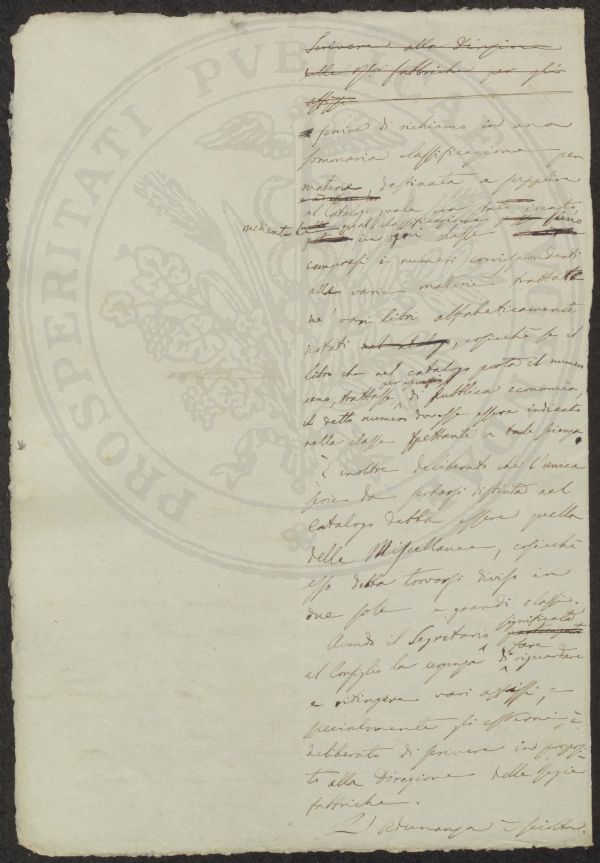 Scrivere alla Direzione
delle fabbriche per gli
affissi
serva di richiamo in una
sommaria classificazione per
materie, destinata a supplire
al Catalogo
mediante la qual classificazione
in ogni classe
compresi i numeri corrispondenti
alle varie materie trattate
ne' vari libri alfabeticamente
notati, cosicchè se il
libro che nel catalogo porta il numero
uno, trattasse per esempio di pubblica economia,
il detto numero dovesse essere indicato
nella classe spettante a tale scienza
È inoltre deliberato che l'unica
serie da potersi distinta nel
Catalogo debba essere quella
delle Miscellanee, cosicchè
esso debba trovarsi diviso in
due sole e grandi classi.
Avendo il Segretario significato
al Consiglio la urgenza di fare riguardare
e ritingere vari affissi, e
specialmente gli esterni, è
deliberato di scrivere in proposi-
to alla Direzione delle Regie
fabbriche.
L'Adunanza è sciolta.
PROSPERITATI PVBLICAE